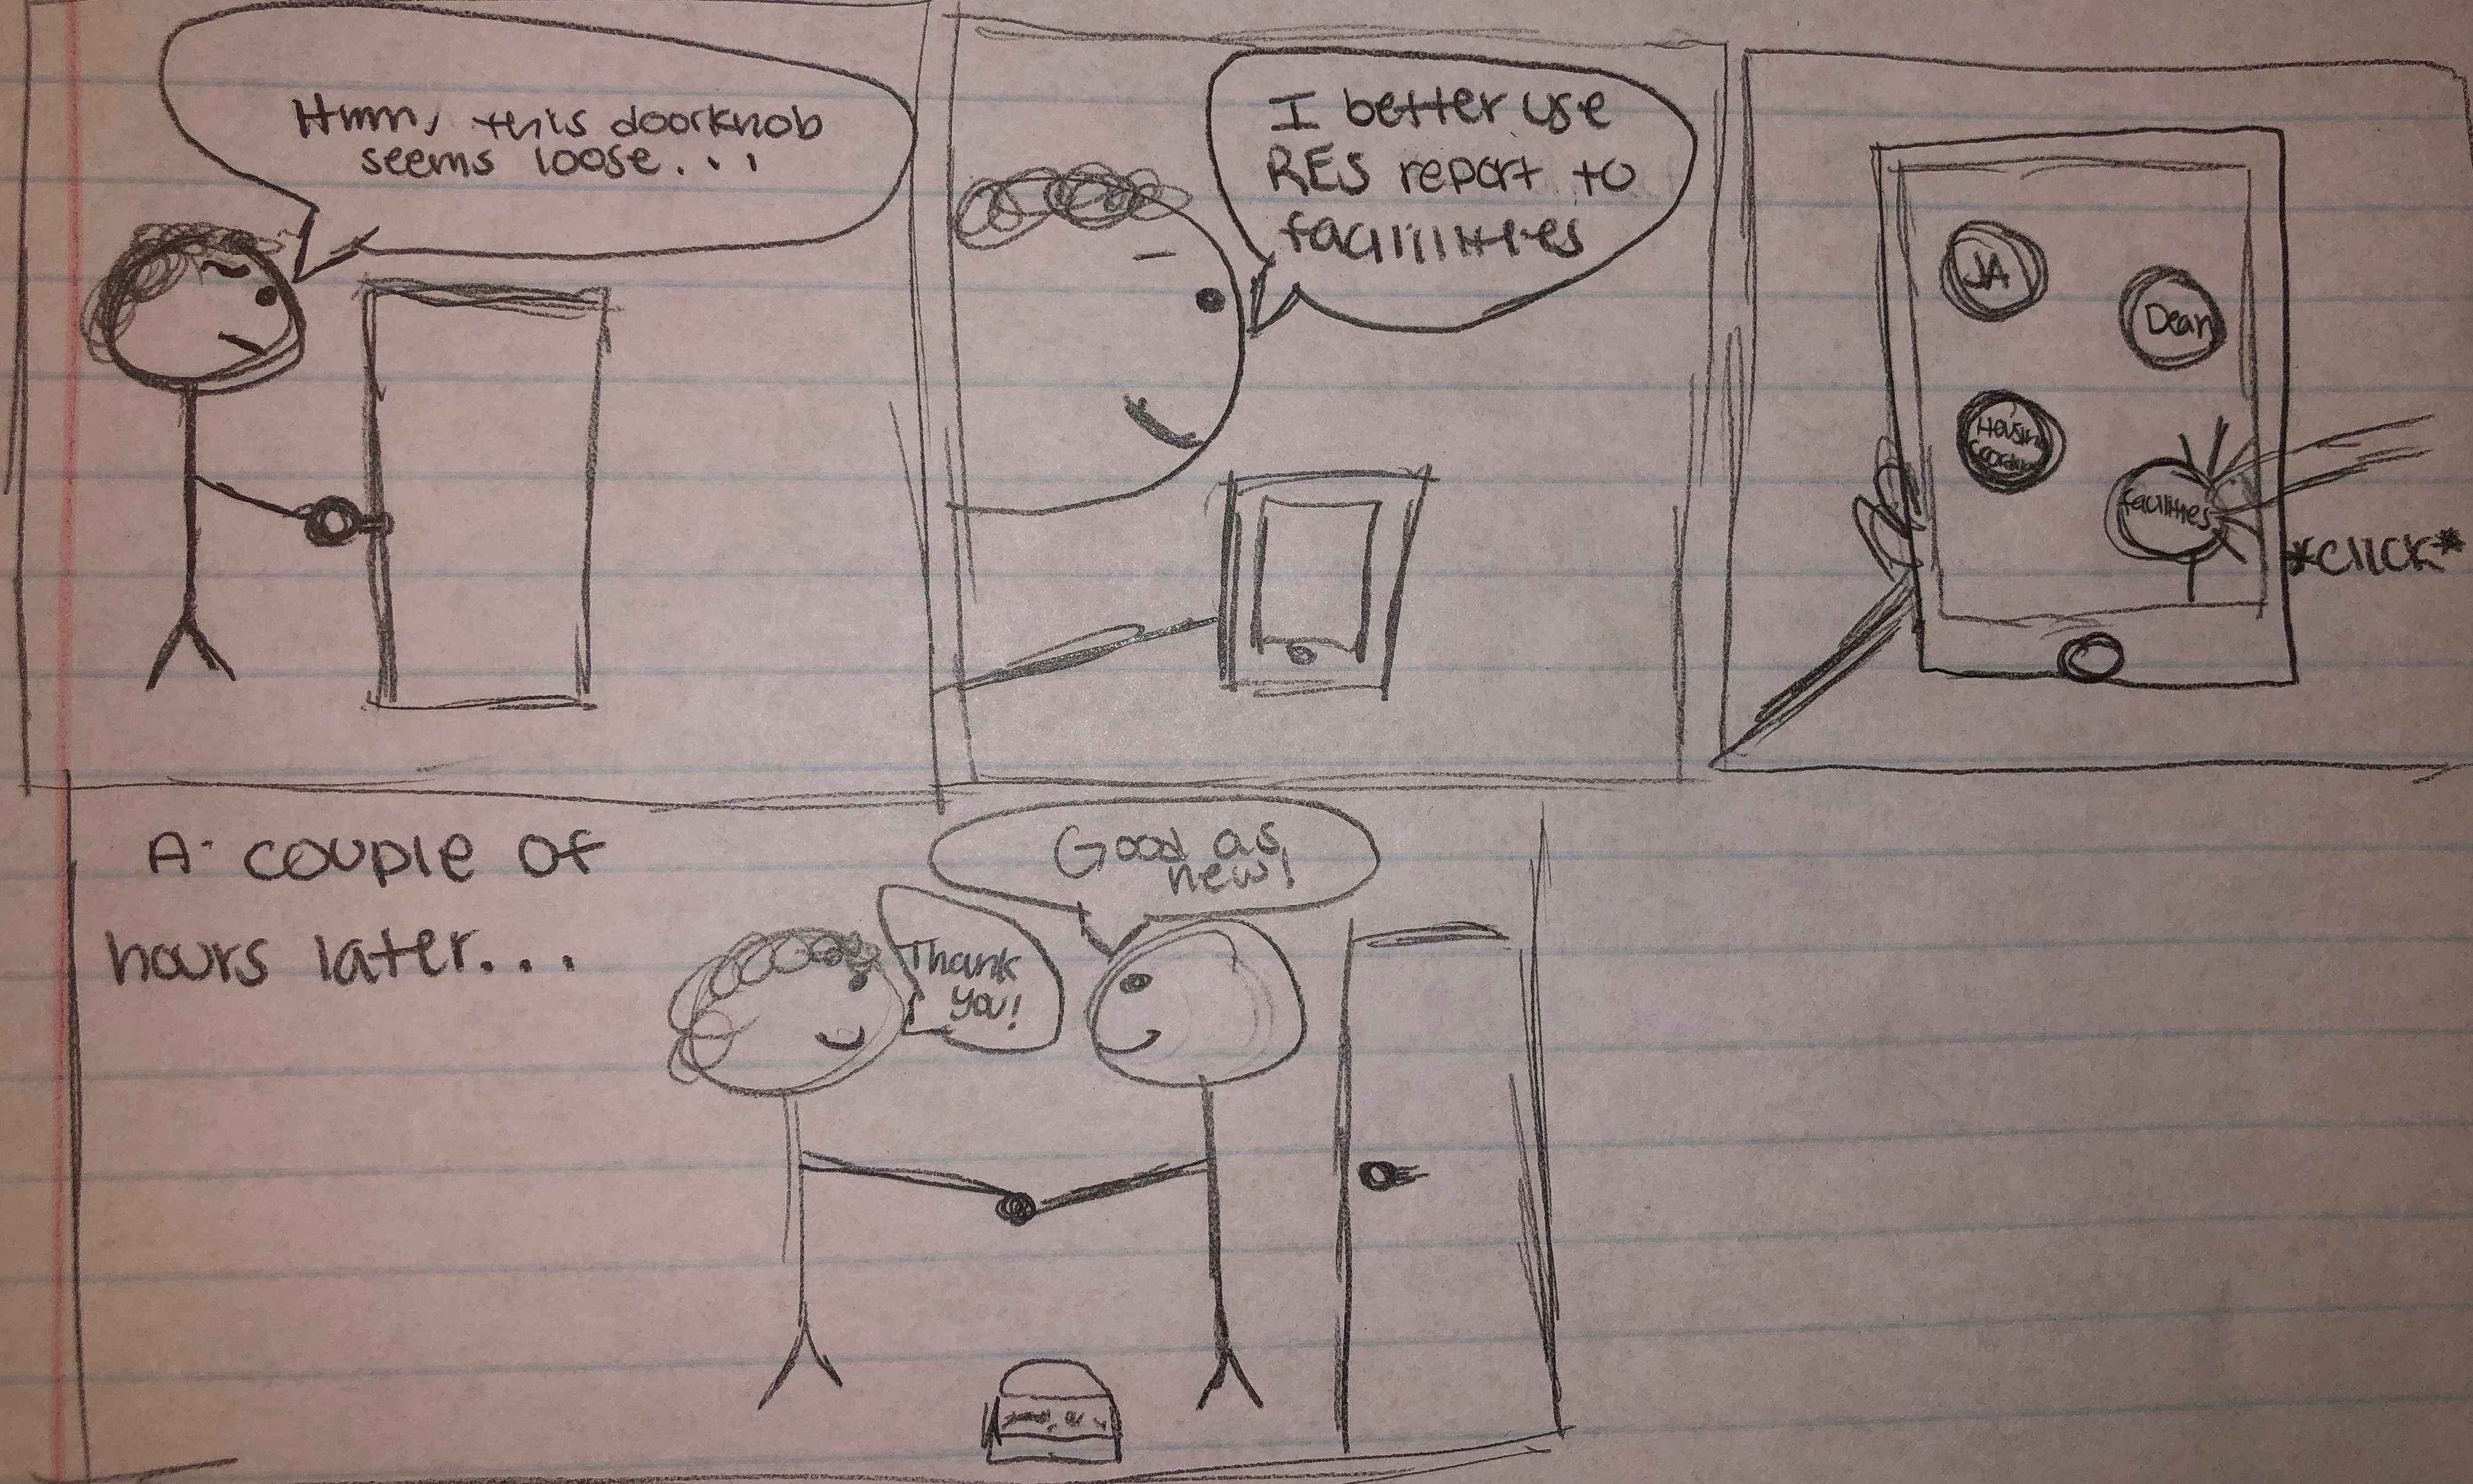 Hmm, this doorknob
seems loose...
I better use
RES report to
facilities
JA
Dean
Housing
facilities
*click*
A couple of
hours later...
Good as
new!
Thank
you!